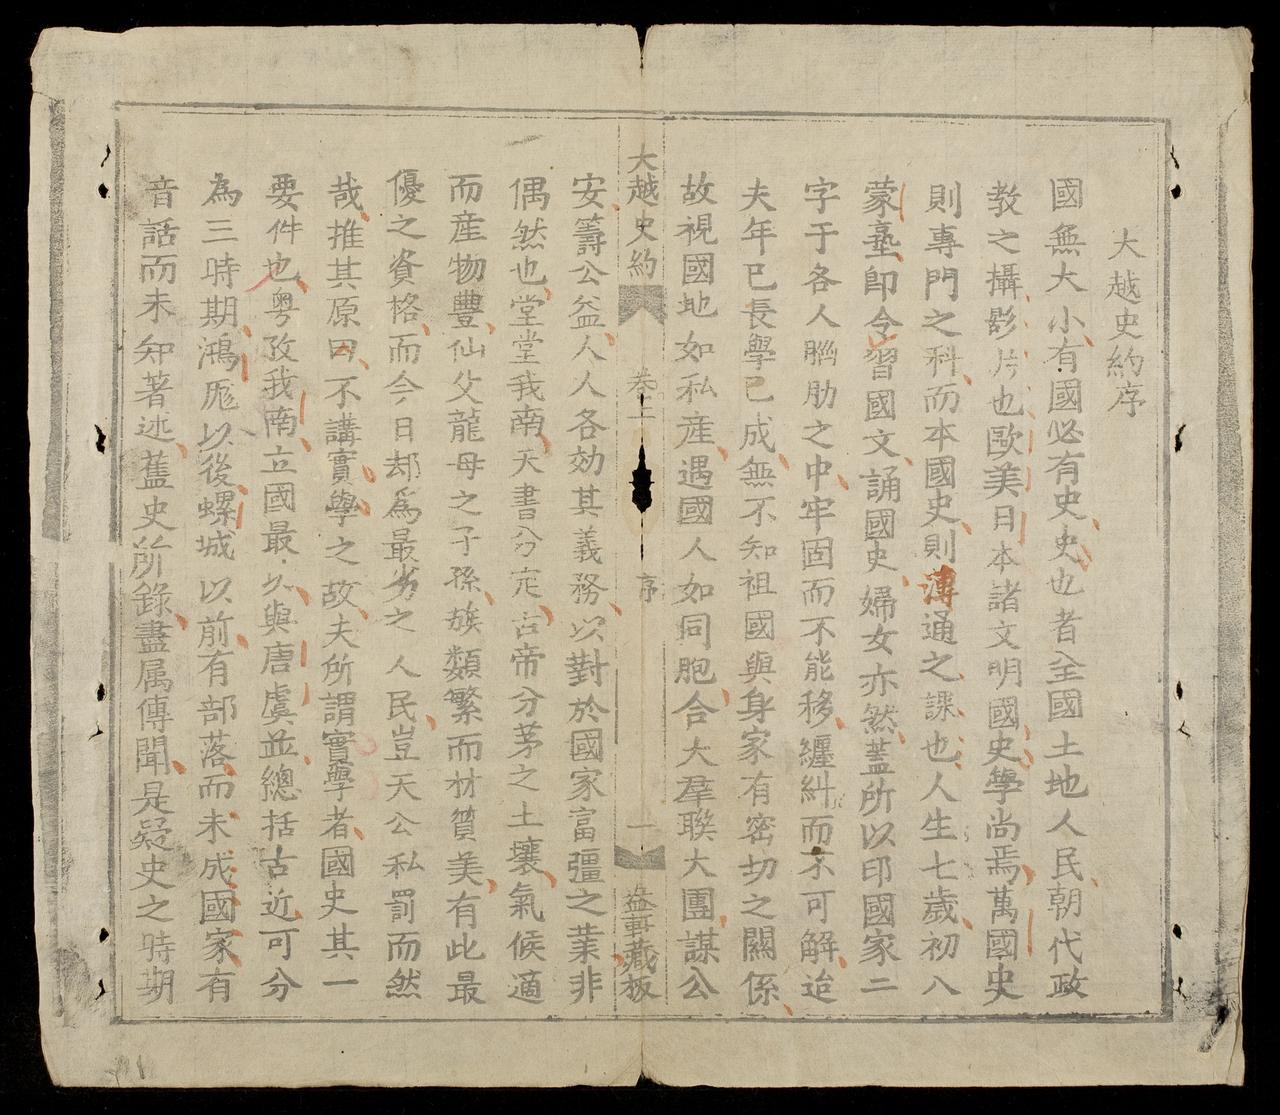 大越史約序
國無大小有國必有史史也者全國土地人民朝代政
教之攝影片也歐美日本諸文明國史學尚焉萬國史
則專門之科而本國史則薄通之課也人生七歲初八
蒙塾卽令習國文誦國史婦女亦然蓋所以印國家二
字于各人腦肋之中牢固而不能移纏糾而不可解迨
夫年已長學已成無不知祖國與身家有密切之關係
故視國地如私産遇國人如同胞合大羣聯大團謀公
大越史約 卷上 序 一 益軒藏板
安籌公益人人各効其義務以對於國家富彊之業非
偶然也堂堂我南天書分定古帝分茅之土壤氣候適
而産物豐仙父龍母之子孫族類繁而材質美有此最
優之資格而今日却爲最劣之人民豈天公私罰而然
哉推其原因不講實學之故夫所謂實學者國史其一
要件也粤攷我南立國最以與唐虞並總括古近可分
為三時期鴻厖以後螺城以前有部落而未成國家有
音話而未知著述舊史所錄盡属傳聞是疑史之時期